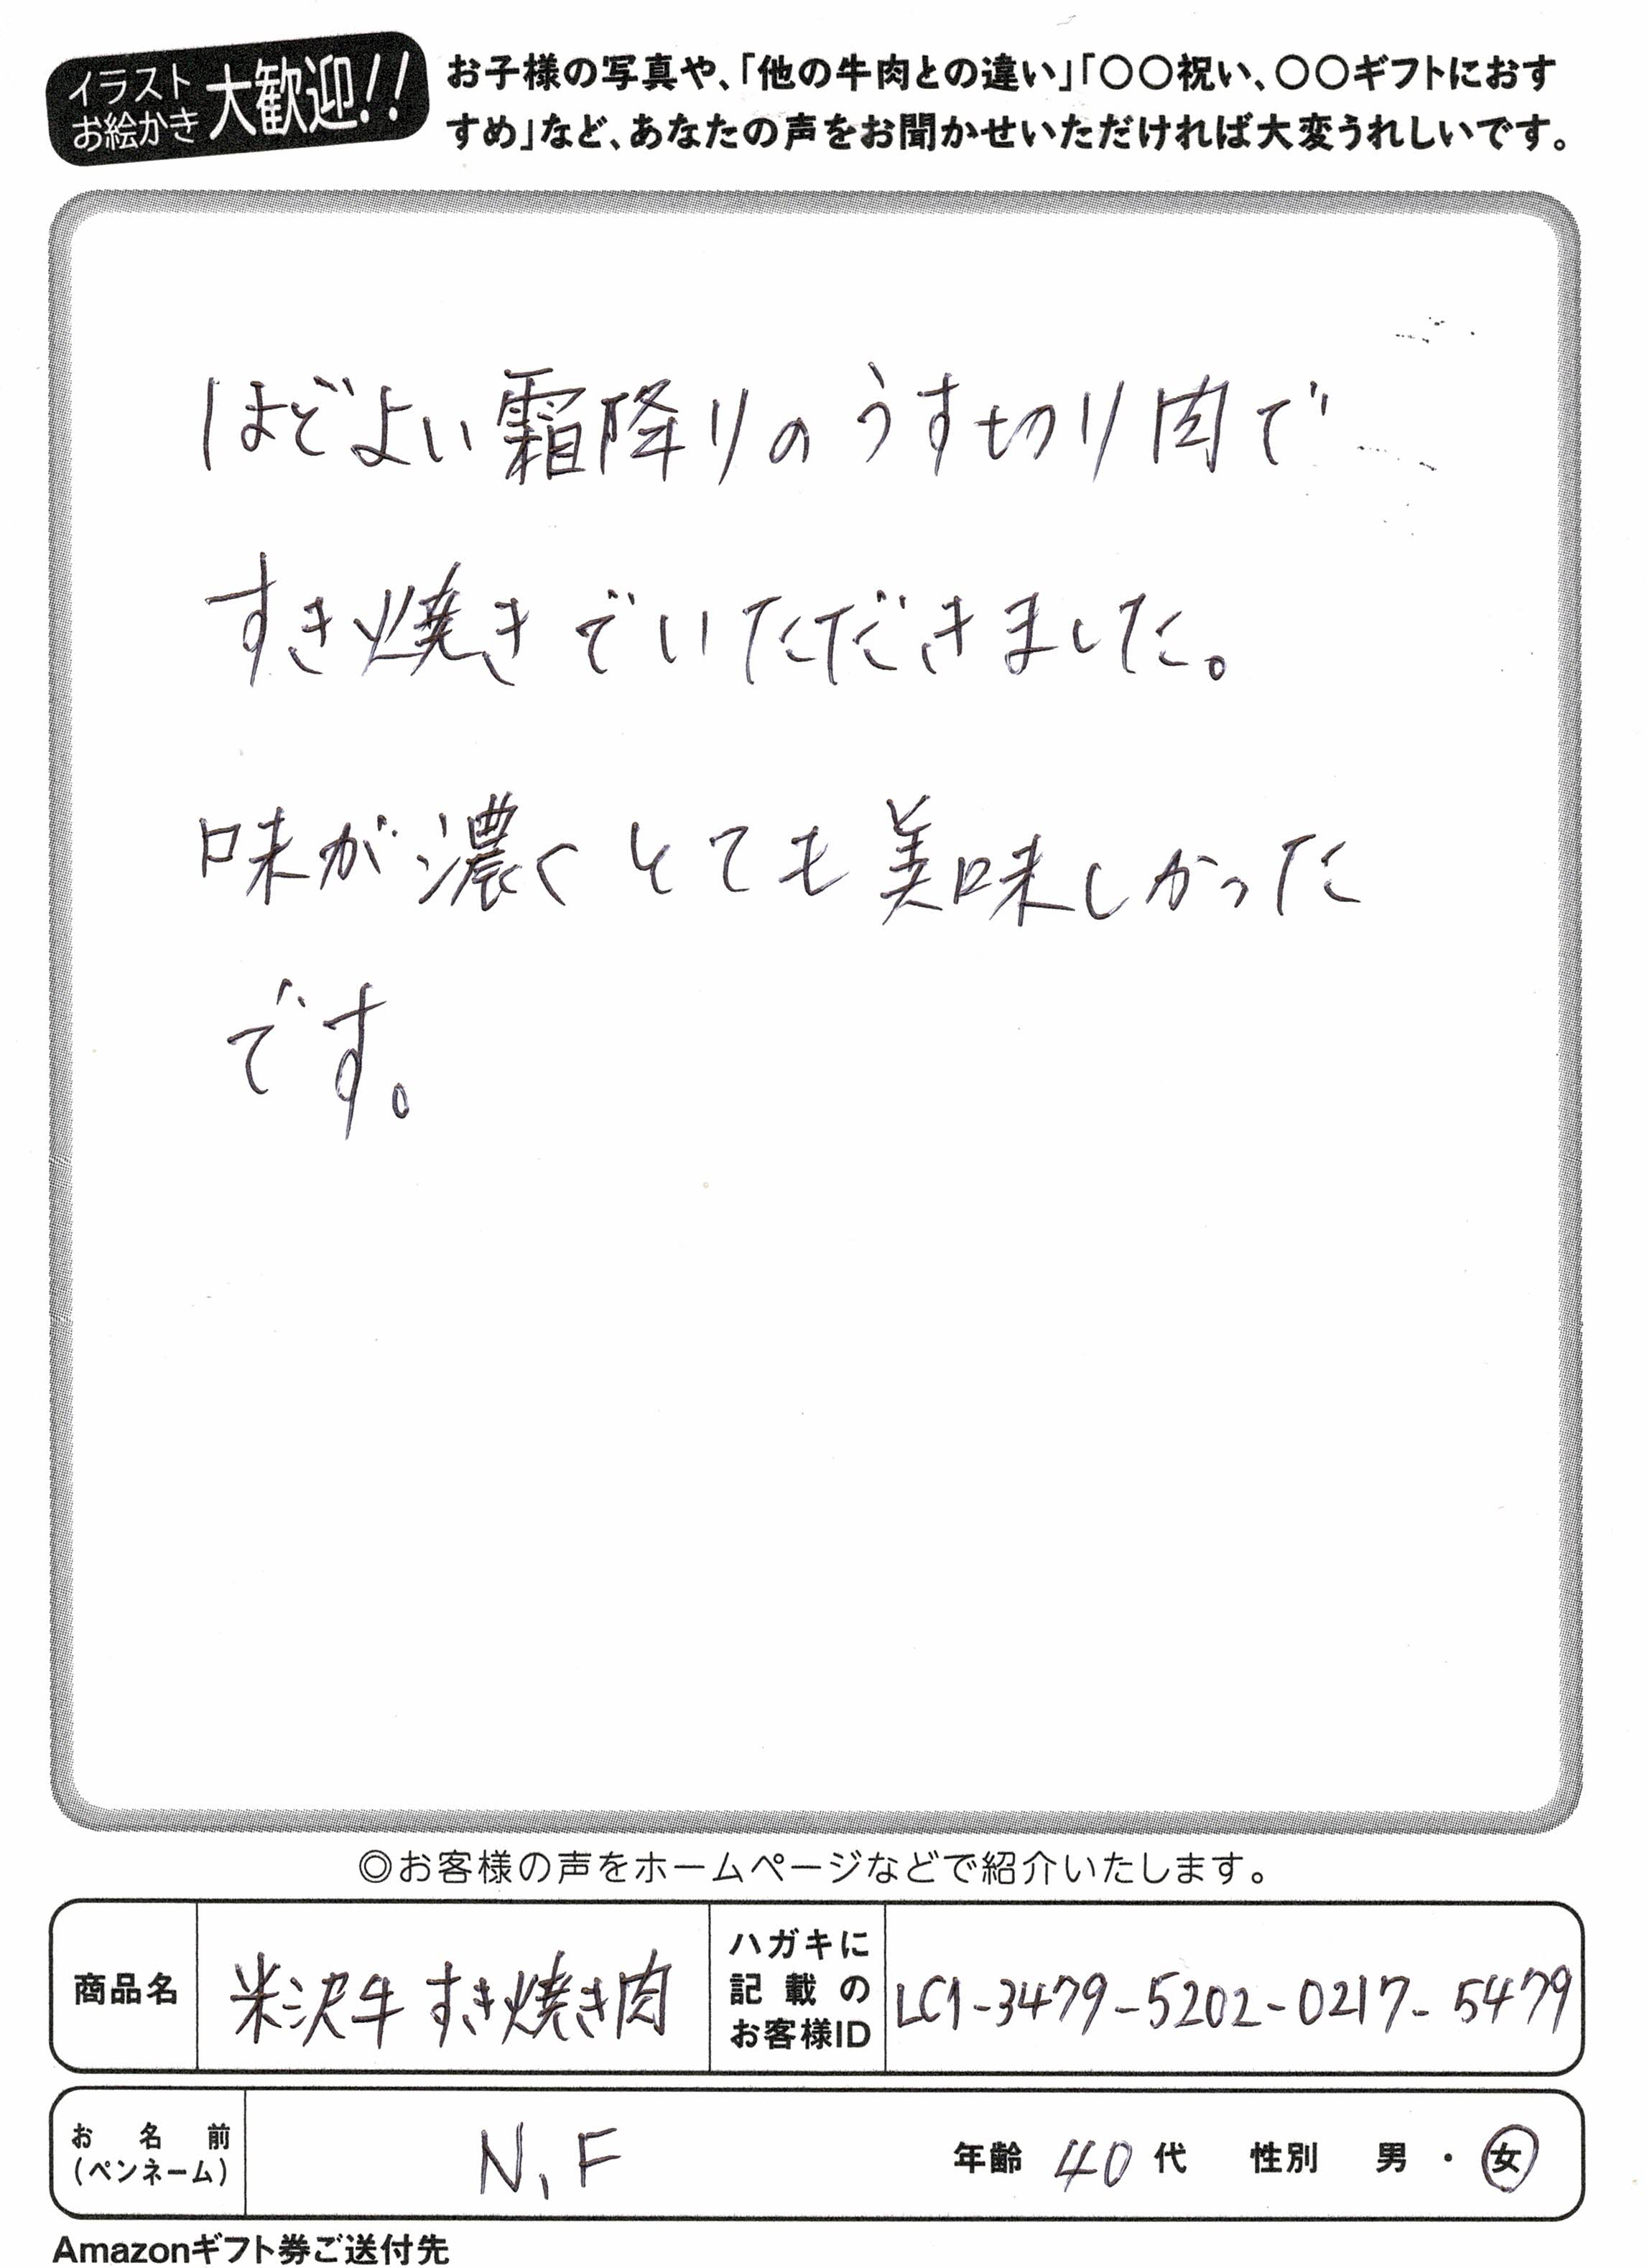 イラスト
お絵かき
大歓迎!!
お子様の写真や、「他の牛肉との違い」「○○祝い、○○ギフトにおす
すめ」など、あなたの声をお聞かせいただければ大変うれしいです。
ほどよい霜降りのうす切り肉で
すき焼きでいただきました。
味が濃くとても美味しかった
です。
◎お客様の声をホームページなどで紹介いたします。
商品名
米沢牛 すき焼き肉
ハガキに
記載の
お客様ID
LC1-3479-5202-0217-5479
お名前
(ペンネーム)
N.F
年齢 40 代 性別 男・女
Amazonギフト券ご送付先